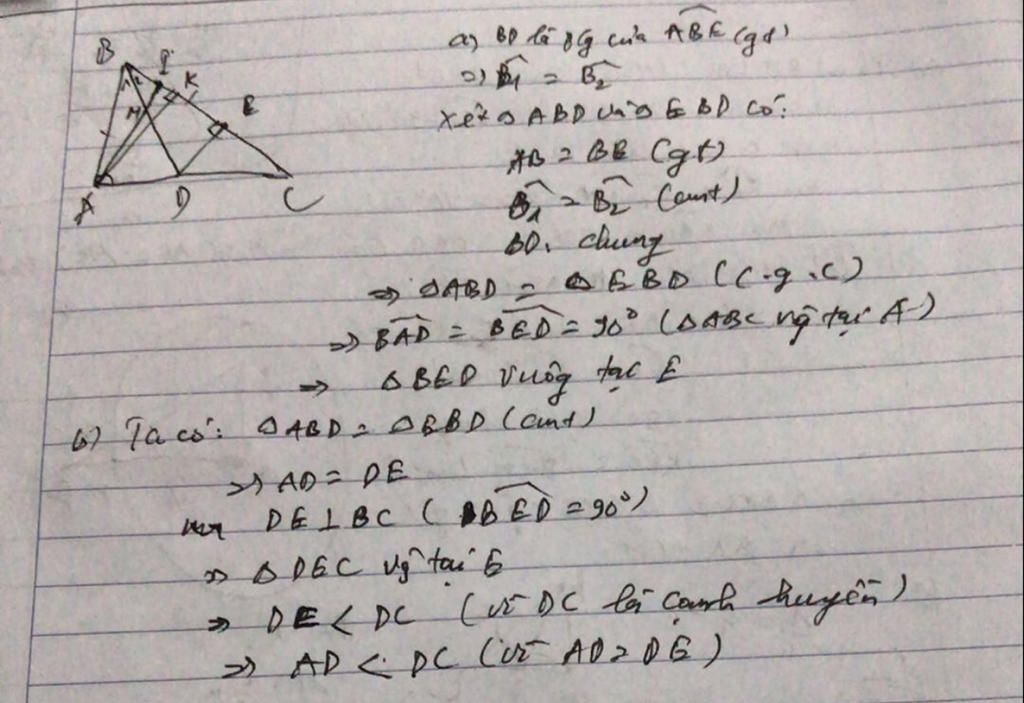 B
I
K
E
H
A
D
C
a) BD là pg của ABE (gt)
=> B1 = B2
Xét △ ABD và △ EBD có:
AB = BE (gt)
B1 = B2 (cmt)
BD: chung
=> △ABD = △EBD (c.g.c)
=> BAD = BED = 90° (△ABC vg tại A)
=> △BED vuông tại E
b) Ta có: △ABD = △EBD (cmt)
=> AD = DE
DE ⊥ BC (BED = 90°)
=> △DEC vg tại E
=> DE < DC (vì DC là cạnh huyền)
=> AD < DC (vì AD = DE)